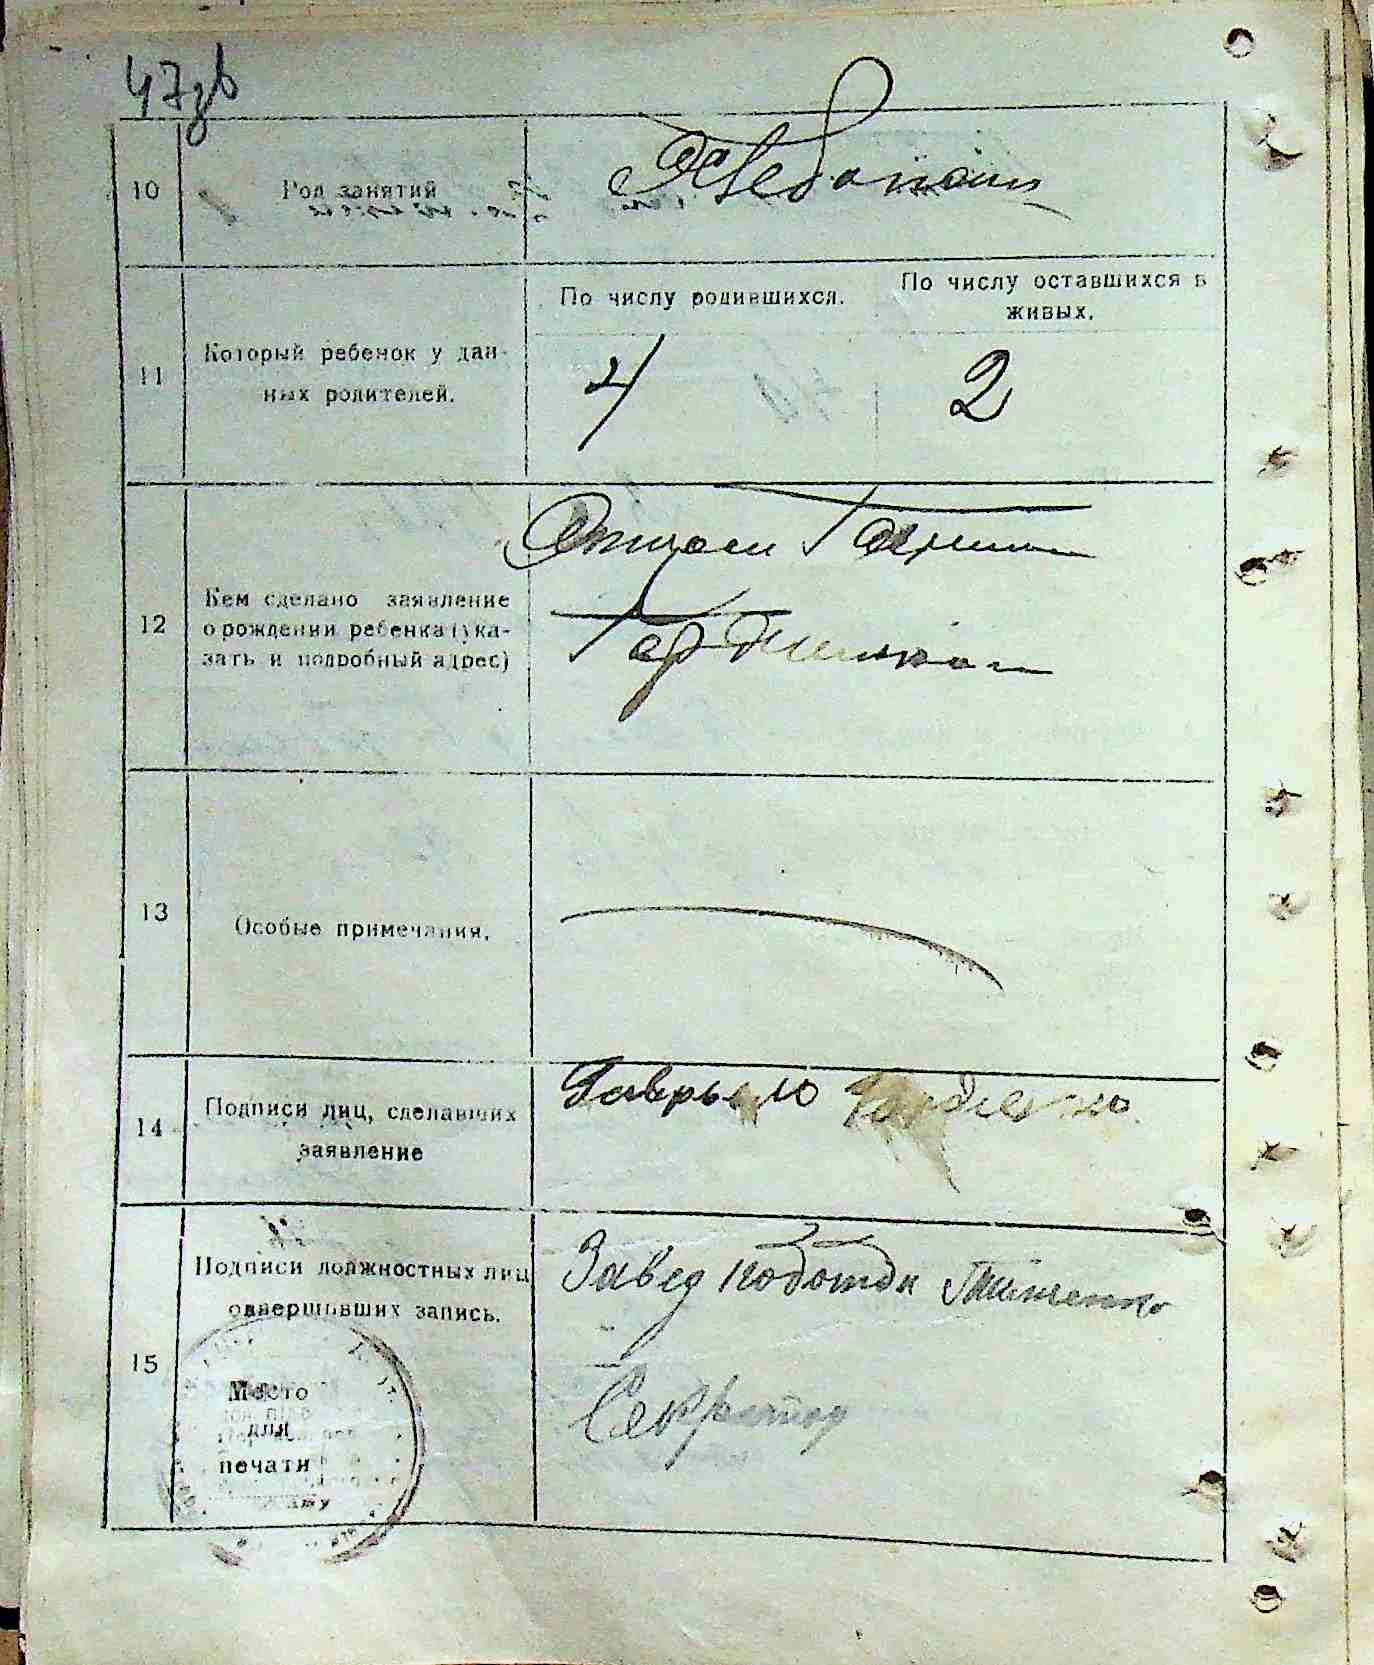 47зв
10
Род занятий
Хлебопаш
11
Который ребенок у дан-
ных родителей.
По числу родившихся.
По числу оставшихся в
живых.
4
2
12
Кем сделано заявление
о рождении ребенка (ука-
зать и подробный адрес)
Отцом
13
Особые примечания.
14
Подписи лиц, сделавших
заявление
Гаврыло Гордиенко
15
Подписи должностных лиц
совершивших запись.
Завед подотд
Секретар
Место
для
печати